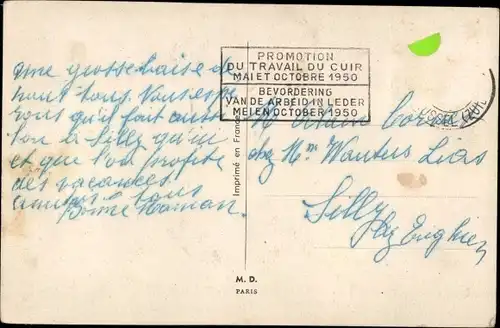 PROMOTION
DU TRAVAIL DU CUIR
MAI ET OCTOBRE 1950
BEVORDERING
VAN DE ARBEID IN LEDER
MEI EN OCTOBER 1950
une grosse baise de
nous tous. Nous espe
rons qu'il fait aussi
bon à Silly qu'ici
et que l'on profite
des vacances
tous
Bonne Maman.
Imprimé en France
M.
chez Mr Wauters
Silly
lez Enghien
M. D.
PARIS